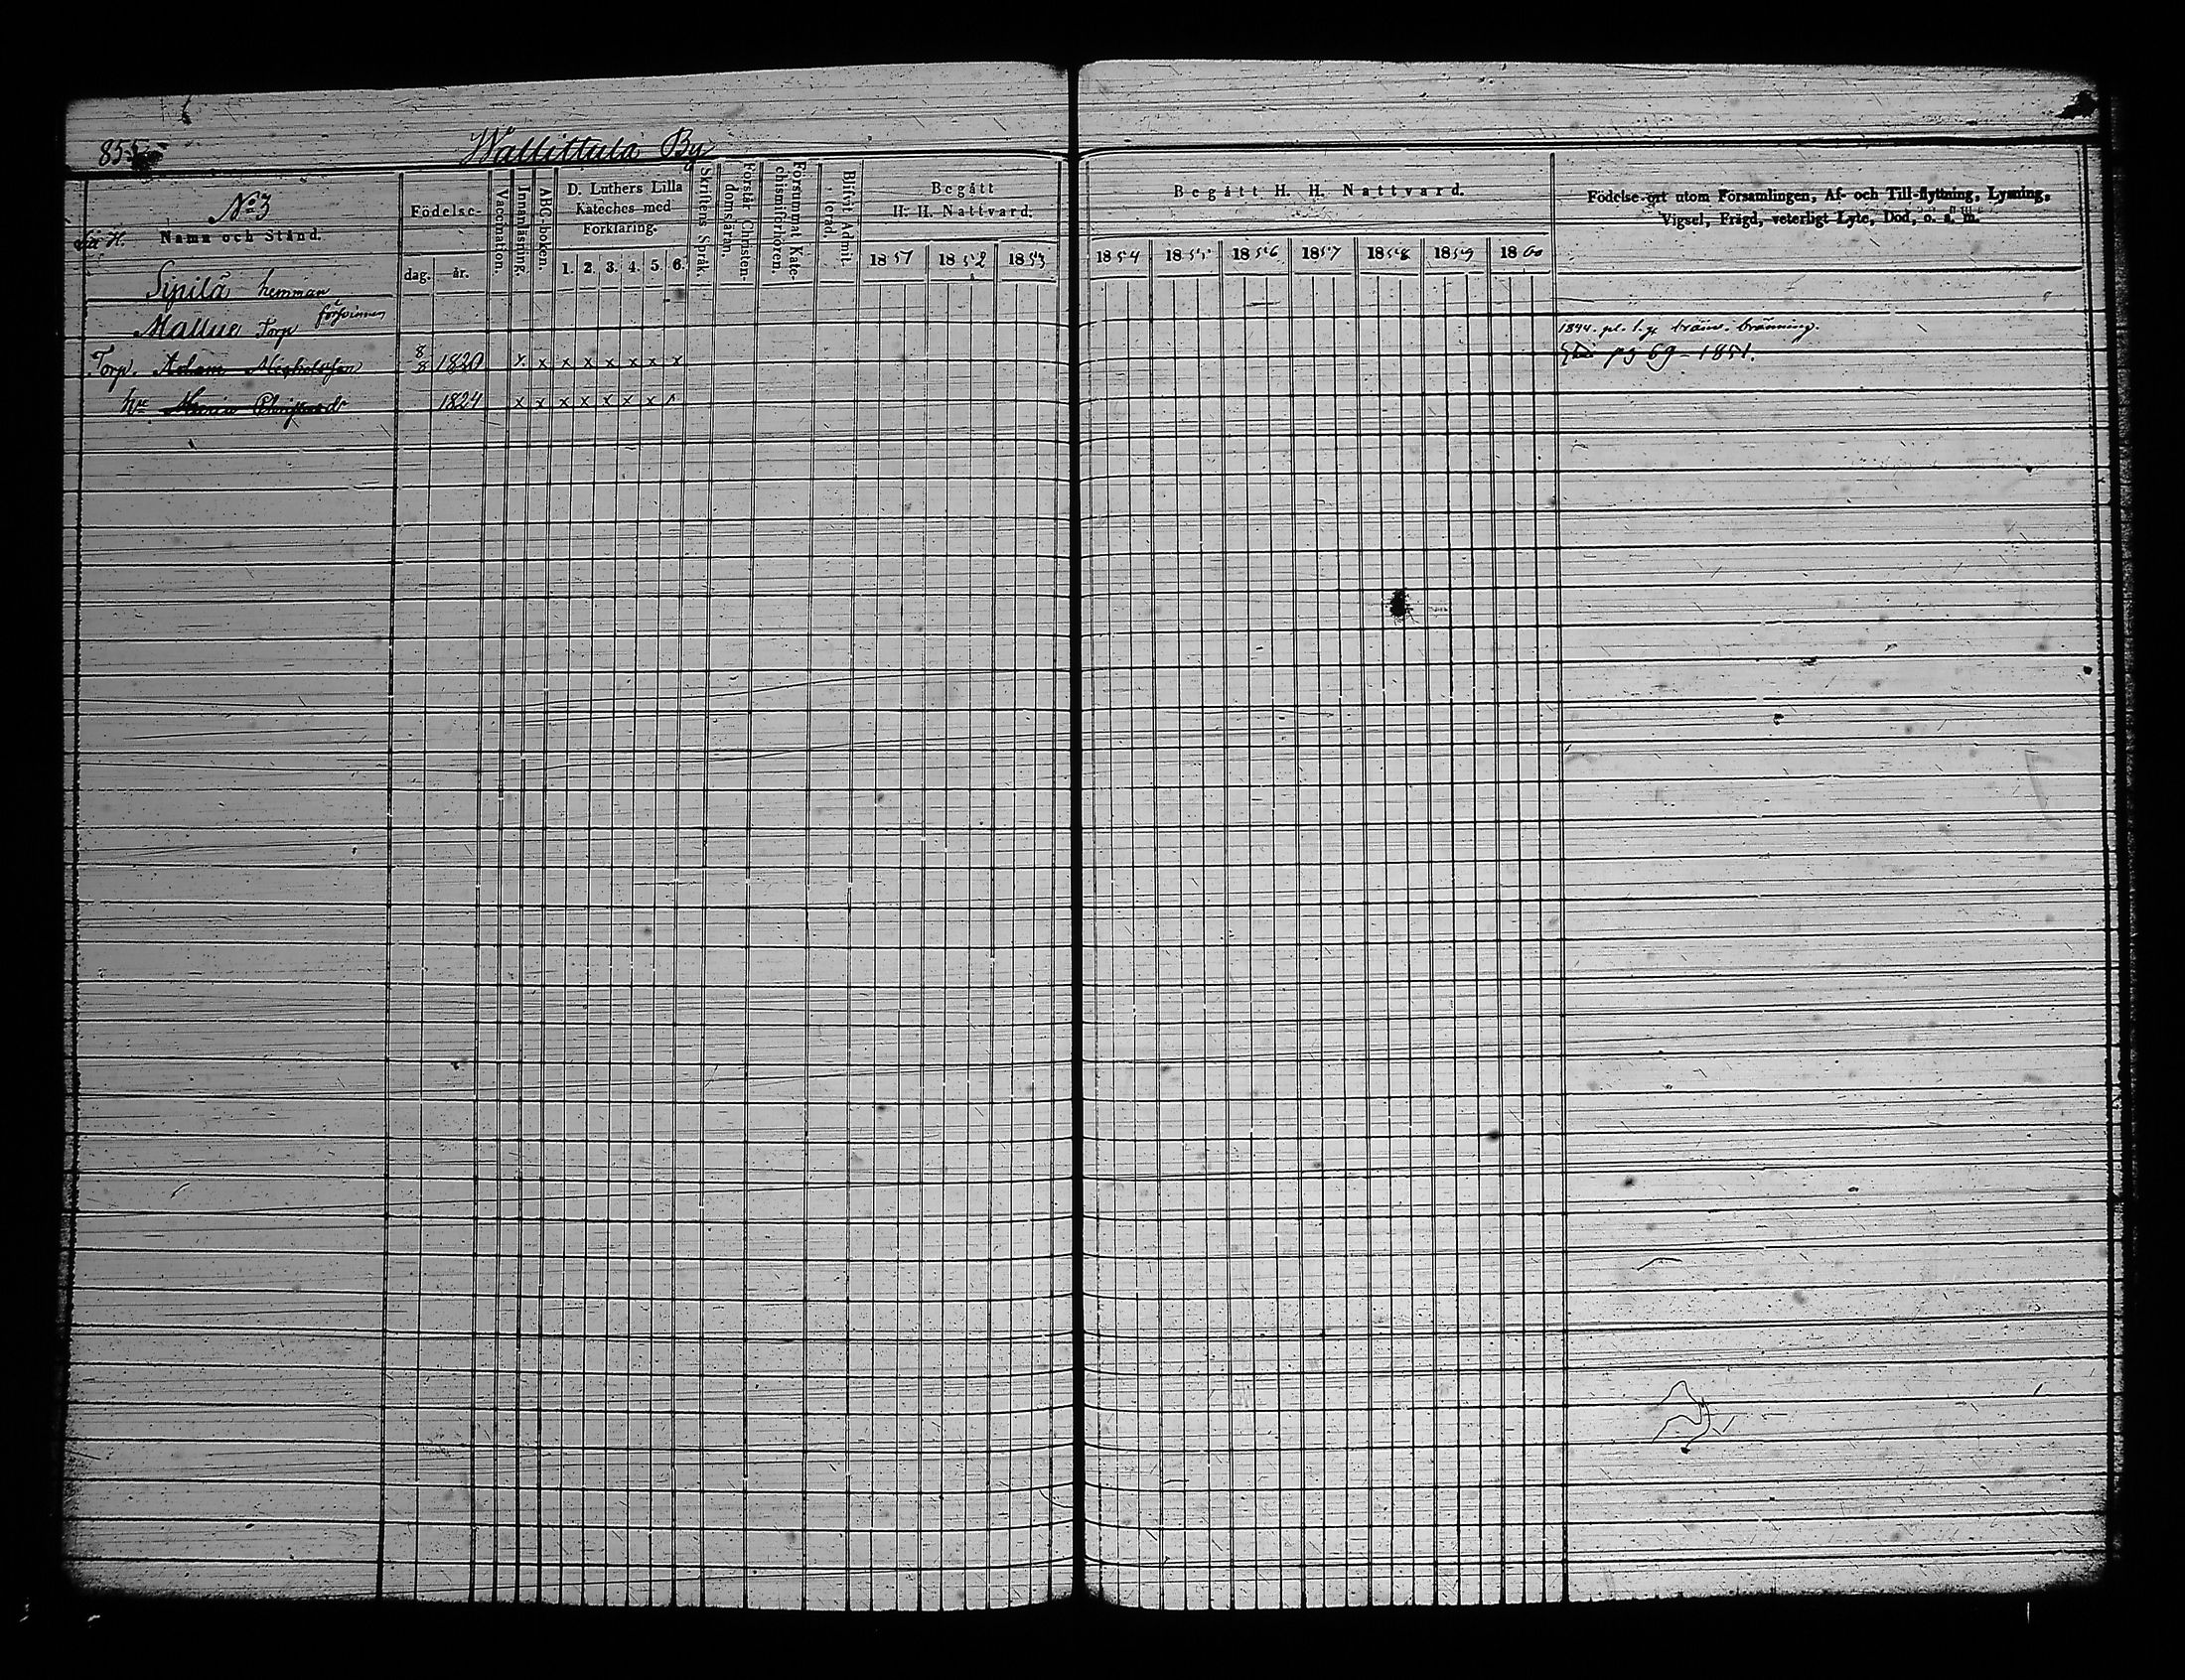 855
Wallittula By
No 3
Namn och Stånd.
Födelse-
dag.
år.
Vaccination.
Innanläsning.
ABC-boken.
D. Luthers Lilla
Kateches med
Förklaring.
1. 2. 3. 4. 5. 6.
Skriftens Språk.
Förstår Christen-
domsläran.
Försummat Kate-
chismiförhören.
Blifvit Admit-
terad.
Begått
H. H. Nattvard.
1851 1852 1853
Begått H. H. Nattvard.
1854 1855 1856 1857 1858 1859 1860
Födelse-ort utom Församlingen, Af- och Till-flyttning, Lysning,
Vigsel, Frägd, veterligt Lyte, Död, o. s. m.
Sipilä hemman
Mallue Torp
1844. pl. f. bränv. bränning.
Torp. Adam Michelsson 8/8 1820 x x x x x x x x
pg 69 - 1851.
Maria 1824 x x x x x x x x